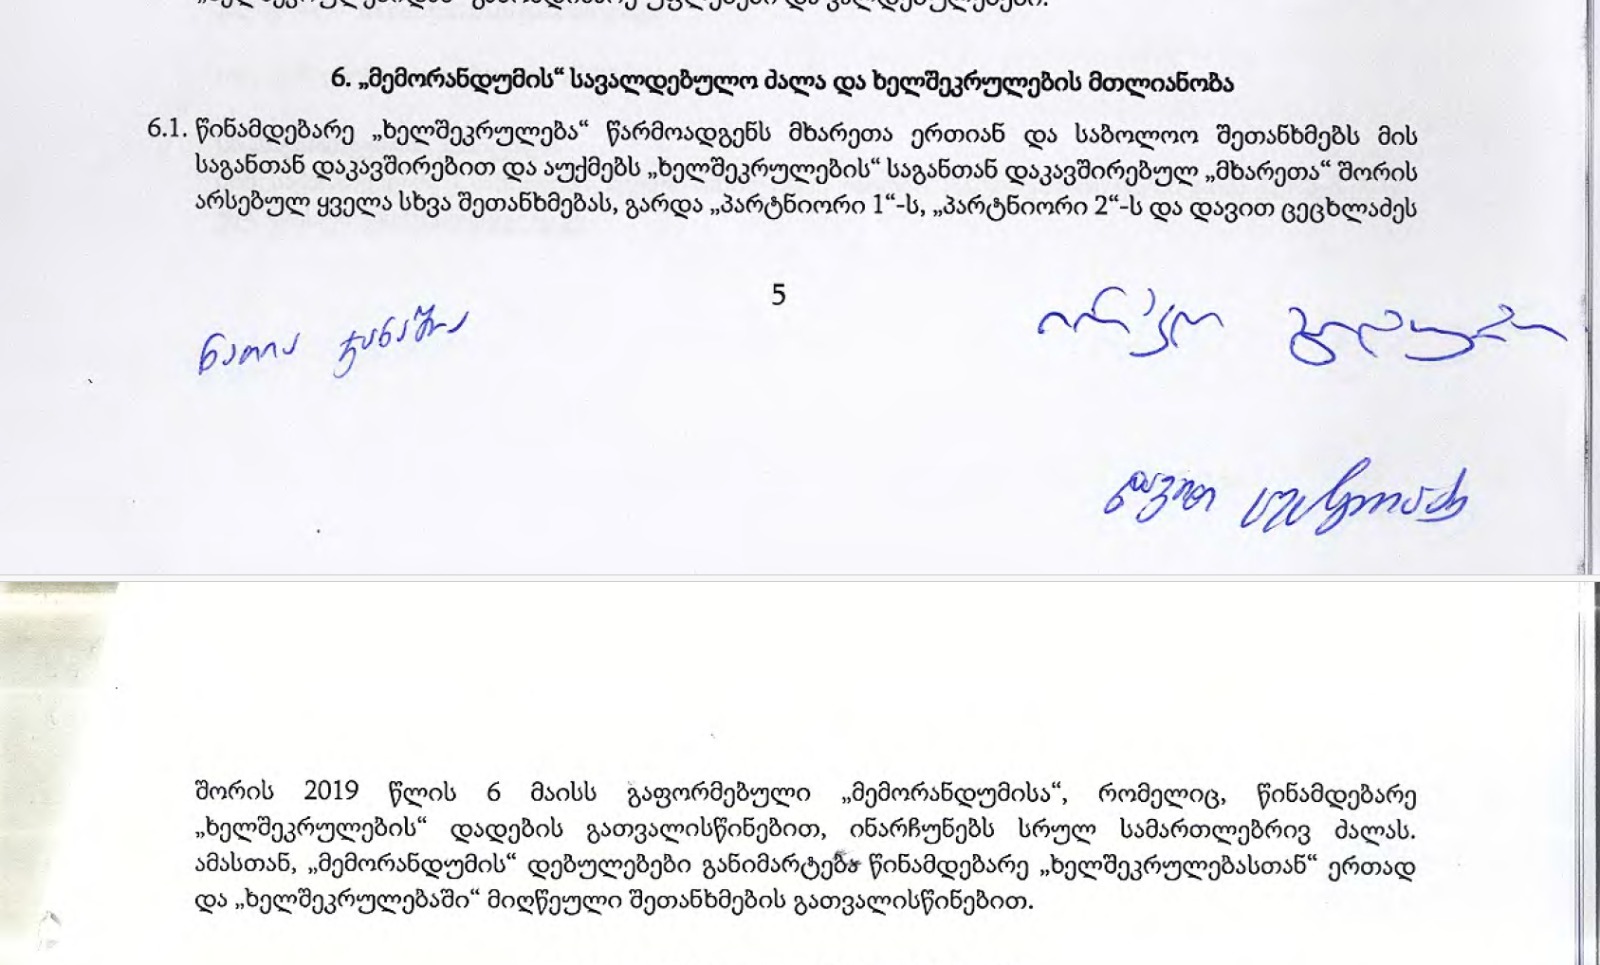 6. „მემორანდუმის“ სავალდებულო ძალა და ხელშეკრულების მთლიანობა
6.1. წინამდებარე „ხელშეკრულება“ წარმოადგენს მხარეთა ერთიან და საბოლოო შეთანხმებს მის
საგანთან დაკავშირებით და აუქმებს „ხელშეკრულების“ საგანთან დაკავშირებულ „მხარეთა“ შორის
არსებულ ყველა სხვა შეთანხმებას, გარდა „პარტნიორი 1“-ს, „პარტნიორი 2“-ს და დავით ცეცხლაძეს
5
ნათია
დავით
შორის 2019 წლის 6 მაისს გაფორმებული „მემორანდუმისა“, რომელიც, წინამდებარე
„ხელშეკრულების“ დადების გათვალისწინებით, ინარჩუნებს სრულ სამართლებრივ ძალას.
ამასთან, „მემორანდუმის“ დებულებები განიმარტება წინამდებარე „ხელშეკრულებასთან“ ერთად
და „ხელშეკრულებაში“ მიღწეული შეთანხმების გათვალისწინებით.